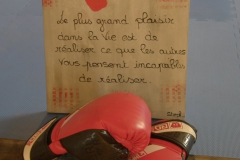 Le plus grand plaisir
dans la vie est de
réaliser ce que les autres
vous pensent incapables
de réaliser.